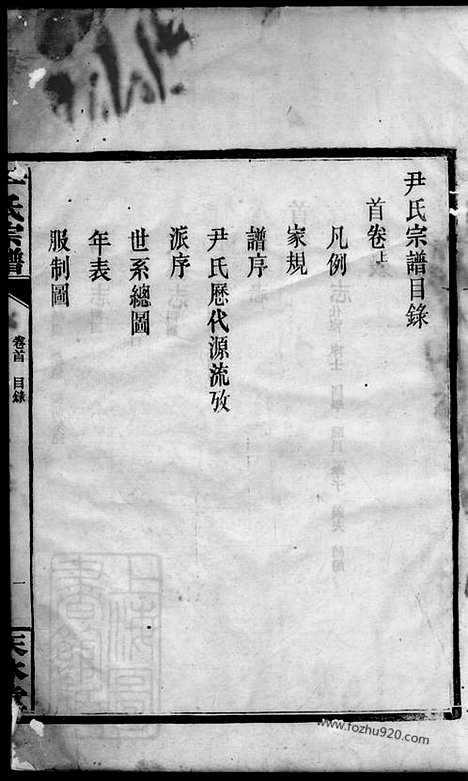 尹氏宗譜目錄
首卷上
凡例
家規
譜序
尹氏歷代源流攷
派序
世系總圖
年表
服制圖
氏宗譜
卷首 目錄
一
天水堂
www.fozhu920.com